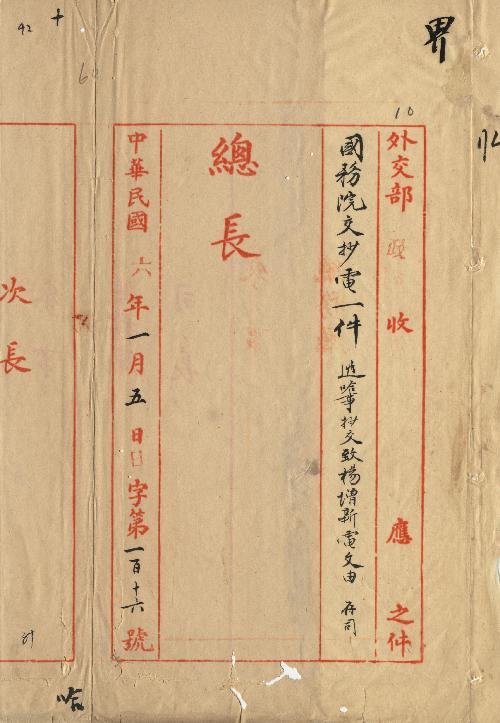 42
十
界
10
外交部 收 應 之件
國務院交抄電一件 抄交致楊增新電文由 存司
總長
中華民國六年一月五日 字第一百十六號
次長
哈